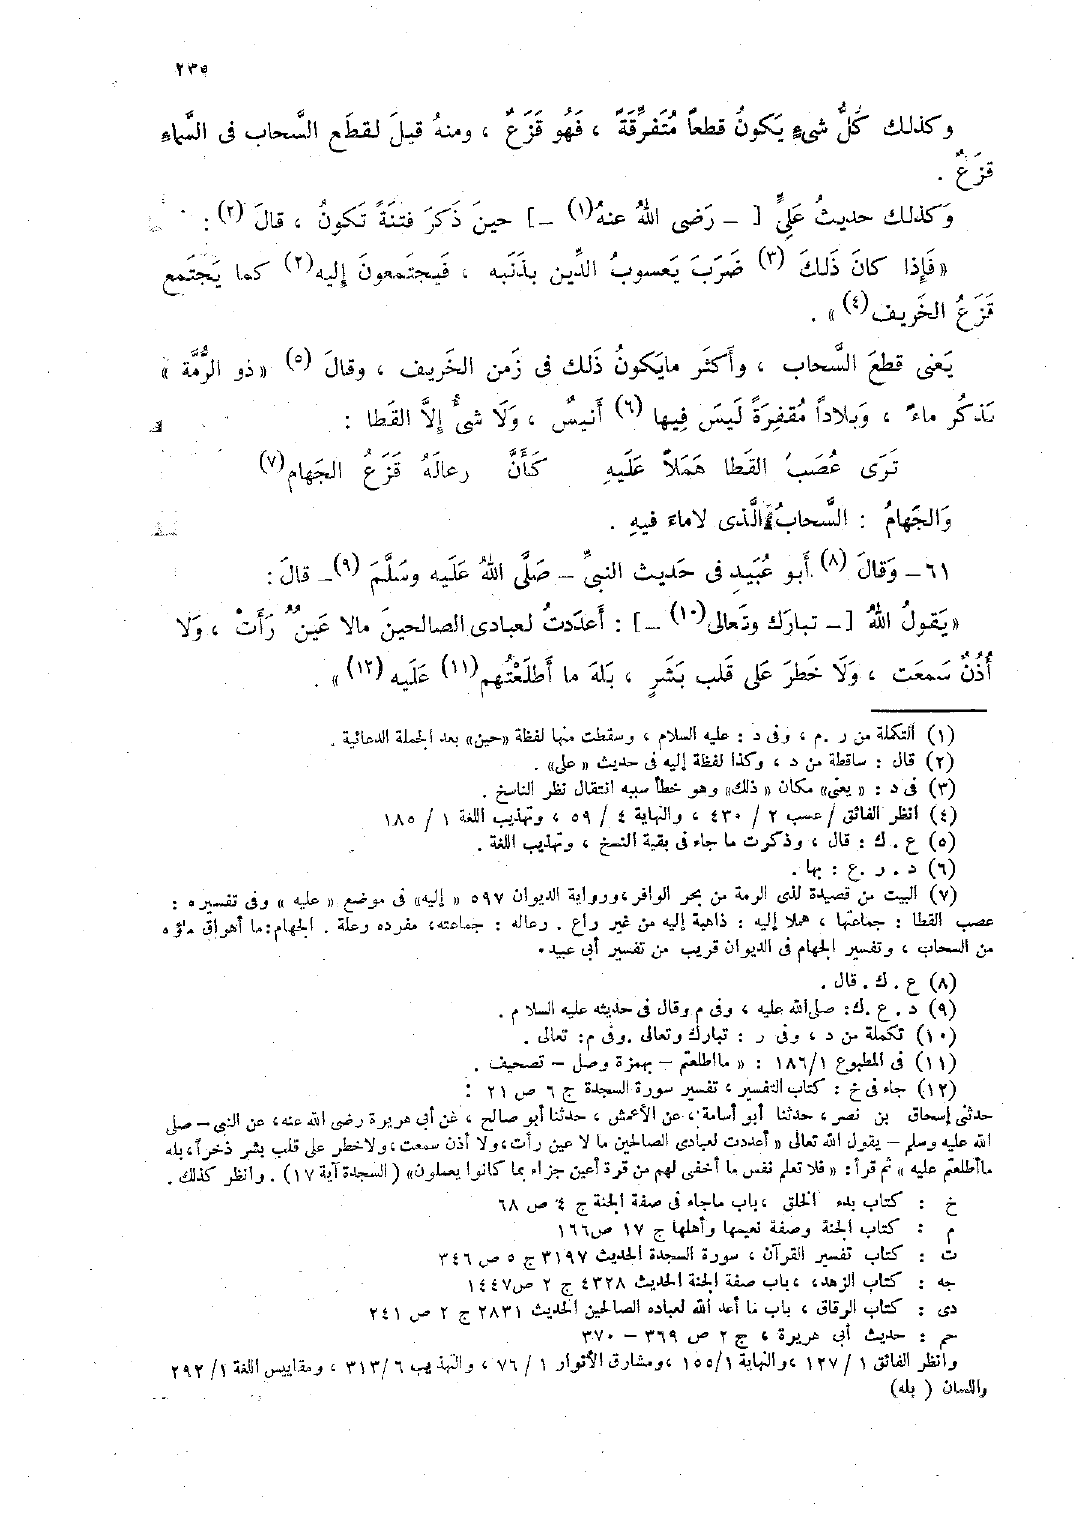 ٢٣٥
وكذلك كُلُّ شيءٍ يَكونُ قطعاً مُتَفرِّقَةً ، فَهُو قَزَعٌ ، ومنهُ قيلَ لقطَع السَّحاب فى السَّماء
قزَعٌ .
وَكذلك حديثُ عَلِىٍّ [ – رَضى اللهُ عنهُ(١) –] حينَ ذَكرَ فتنَةً تَكونُ ، قالَ (٢) :
«فَإِذا كانَ ذَلكَ (٣) ضَرَبَ يَعسوبُ الدِّين بذَنَبه ، فَيجتَمعونَ إِليه(٢) كما يَجتَمع
قَزَعُ الخَريف(٤) » .
يَعنى قطعَ السَّحاب ، وأَكثَر مايَكونُ ذَلك فى زَمن الخَريف ، وقالَ (٥) «ذو الرُّمَّة »
يَذكُر ماءً ، وَبلاداً مُقفرَةً لَيسَ فيها (٦) أَنيسٌ ، وَلَا شىءٌ إِلَّا القَطا :
تَرَى عُصَبَ القَطا هَمَلاً عَلَيهِ كَأَنَّ رعالَهُ قَزَعُ الجَهام(٧)
وَالجَهامُ : السَّحابُ الَّذى لاماءَ فيهِ .
٦١ – وَقالَ (٨) أَبو عُبَيدِ فى حَديث النبىِّ – صَلَّى اللهُ عَلَيه وسَلَّمَ (٩) – قالَ :
«يَقولُ اللهُ [ – تبارَك وتَعالى(١٠) –] : أَعدَدتُ لعبادى الصالحينَ مالا عَينٌ رَأَتْ ، وَلا
أُذُنٌ سَمعَت ، وَلَا خَطرَ عَلى قَلب بَشَرٍ ، بَلهَ ما أَطلَعْتُهم(١١) عَلَيه (١٢) » .
(١) التكملة من ر .م ، وفى د : عليه السلام ، وسقطت منها لفظة «حين» بعد الجملة الدعائية .
(٢) قال : ساقطة من د ، وكذا لفظة إليه فى حديث « على» .
(٣) فى د : « يعنى» مكان « ذلك» وهو خطأ سببه انتقال نظر الناسخ .
(٤) انظر الفائق / عسب ٢ / ٤٣٠ ، والنهاية ٤ / ٥٩ ، وتهذيب اللغة ١ / ١٨٥
(٥) ع . ك : قال ، وذكرت ما جاء فى بقية النسخ ، وتهذيب اللغة .
(٦) د . ر . ع : بها .
(٧) البيت من قصيدة لذى الرمة من بحر الوافر ،ورواية الديوان ٥٩٧ « إليه» فى موضع « عليه » وفى تفسيره :
عصب القطا : جماعتها ، هملا إليه : ذاهبة إليه من غير راع . رعاله : جماعته، مفرده رعلة . الجهام:ما أهراق ماؤه
من السحاب ، وتفسير الجهام فى الديوان قريب من تفسير أبى عبيد .
(٨) ع . ك . قال .
(٩) د . ع .ك: صلى الله عليه ، وفى م وقال فى حديثه عليه السلام .
(١٠) تكملة من د ، وفى ر : تبارك وتعالى .وفى م: تعالى .
(١١) فى المطبوع ١٨٦/١ : « مااطلعتم – بهمزة وصل – تصحيف .
(١٢) جاء فى خ : كتاب التفسير ، تفسير سورة السجدة ج ٦ ص ٢١ :
حدثنى إسحاق بن نصر ، حدثنا أبو أسامة ، عن الأعمش ، حدثنا أبو صالح ، عن أبى هريرة رضى الله عنه، عن النبى – صلى
الله عليه وسلم – يقول الله تعالى « أعددت لعبادى الصالحين ما لا عين رأت،ولا أذن سمعت،ولاخطر على قلب بشر ذخراً،بله
ماأطلعتم عليه » ثم قرأ: « فلا تعلم نفس ما أخفى لهم من قرة أعين جزاء بما كانوا يعملون» ( السجدة آية ١٧) . وانظر كذلك .
خ : كتاب بدء الخلق ، باب ماجاء فى صفة الجنة ج ٤ ص ٦٨
م : كتاب الجنة وصفة نعيمها وأهلها ج ١٧ ص١٦٦
ت : كتاب تفسير القرآن ، سورة السجدة الحديث ٣١٩٧ ج ٥ ص ٣٤٦
جه : كتاب الزهد، ،باب صفة الجنة الحديث ٤٣٢٨ ج ٢ ص١٤٤٧
دى : كتاب الرقاق ، باب ما أعد الله لعباده الصالحين الحديث ٢٨٣١ ج ٢ ص ٢٤١
حم : حديث أبى هريرة ، ج ٢ ص ٣٦٩ – ٣٧٠
وانظر الفائق ١ / ١٢٧ ،والنهاية ١٥٥/١ ،ومشارق الأنوار ١ / ٧٦ ، والتهذيب ٣١٣/٦ ، ومقاييس اللغة ١/ ٢٩٢
واللسان ( بله)